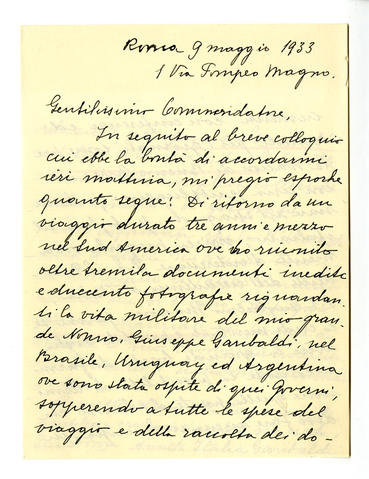 Roma 9 maggio 1933
1 Via Pompeo Magno.
Gentilissimo Commendatore,
In seguito al breve colloquio
cui ebbe la bontà di accordarmi
ieri mattina, mi pregio esporLe
quanto segue: Di ritorno da un
viaggio durato tre anni e mezzo
nel Sud America ove ho riunito
oltre tremila documenti inediti
e duecento fotografie riguardan-
ti la vita militare del mio gran-
de Nonno, Giuseppe Garibaldi, nel
Brasile, Uruguay ed Argentina
ove sono stata ospite di quei Governi,
sopperendo a tutte le spese del
viaggio e della raccolta dei do-